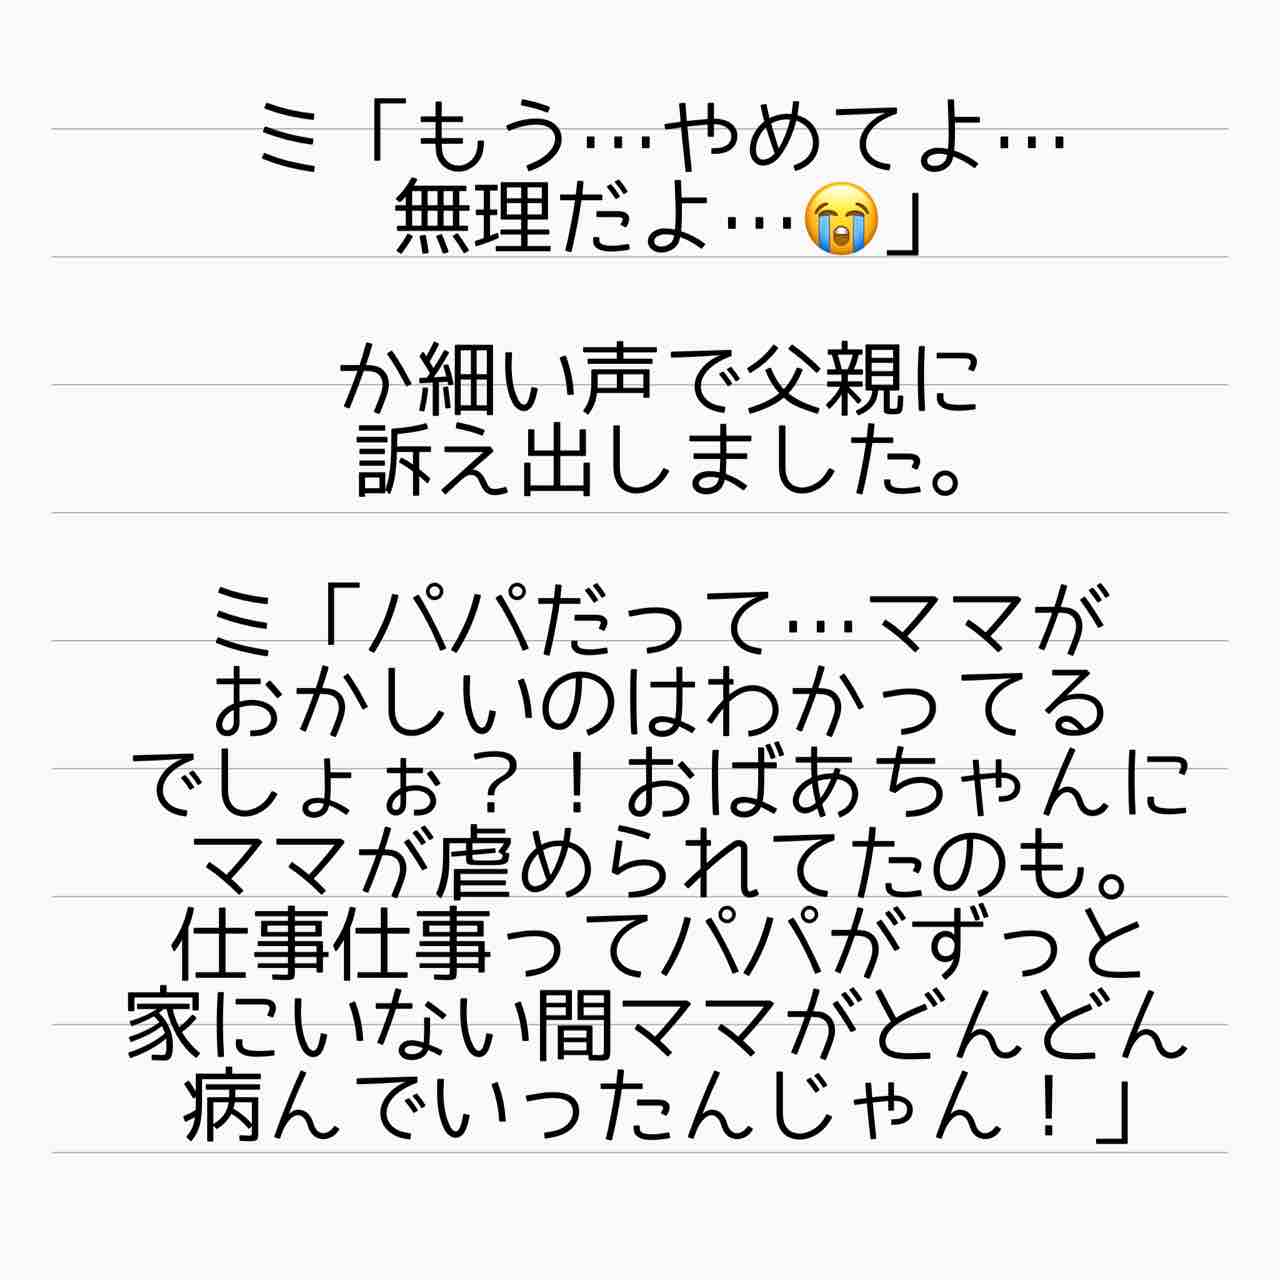 ミ「もう…やめてよ…
無理だよ…😭」
か細い声で父親に
訴え出しました。
ミ「パパだって…ママが
おかしいのはわかってる
でしょぉ？！おばあちゃんに
ママが虐められてたのも。
仕事仕事ってパパがずっと
家にいない間ママがどんどん
病んでいったんじゃん！」